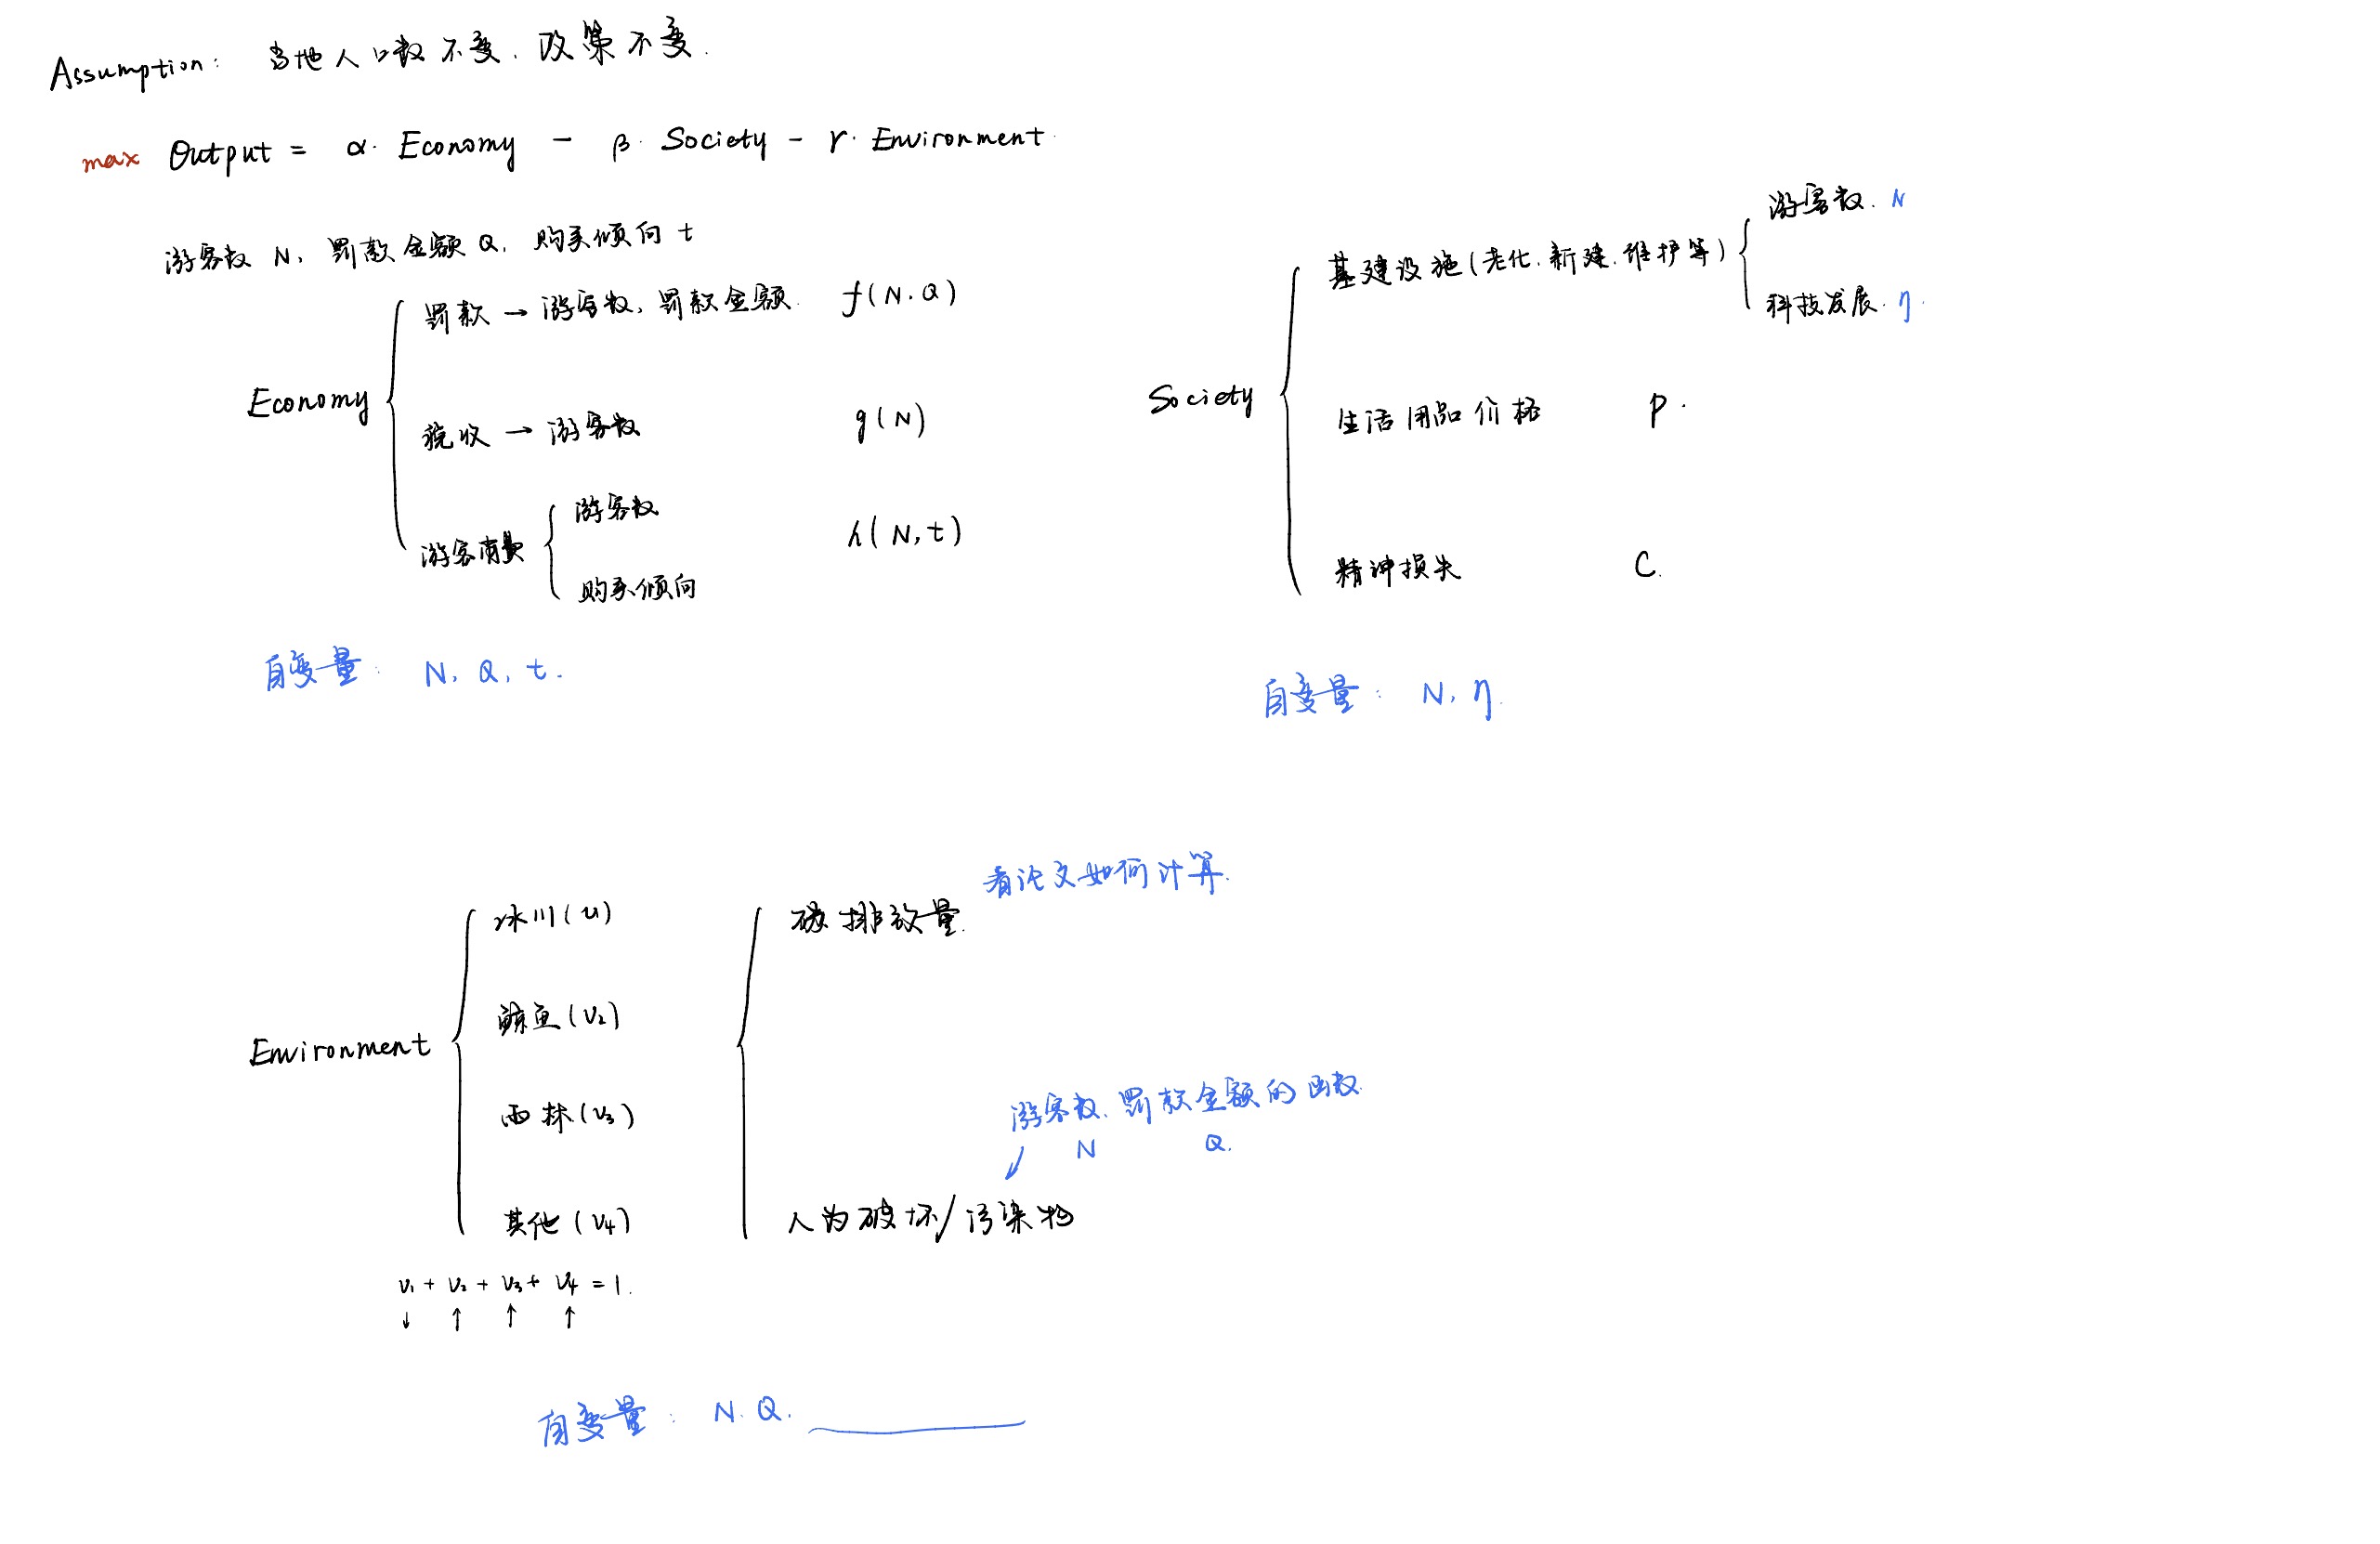 Assumption: 当地人口数不变. 政策不变.
max Output = α· Economy - β· Society - γ· Environment.
游客数 N, 罚款金额 Q, 购买倾向 t
Economy
罚款 → 游客数, 罚款金额. f(N.Q)
税收 → 游客数 g(N)
游客消费
游客数
购买倾向
h(N,t)
自变量: N, Q, t.
Society
基建设施(老化.新建.维护等)
游客数. N
科技发展. η.
生活用品价格 P.
精神损失 C.
自变量: N, η.
Environment
冰川(v1)
鲸鱼(v2)
雨林(v3)
其他(v4)
v1 + v2 + v3 + v4 = 1.
↓ ↑ ↑ ↑
看论文如何计算.
碳排放量.
游客数. 罚款金额的函数.
N Q.
人为破坏/污染物
自变量: N. Q.